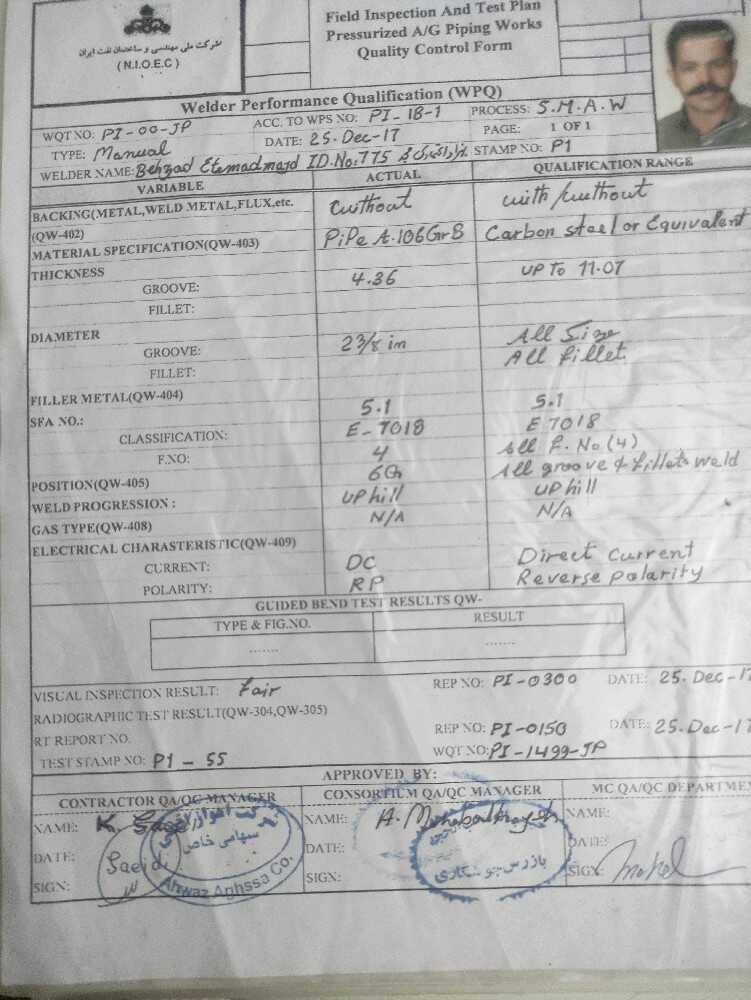 شرکت ملی مهندسی و ساختمان نفت ایران
( N.I.O.E.C )
Field Inspection And Test Plan
Pressurized A/G Piping Works
Quality Control Form
Welder Performance Qualification (WPQ)
WQT NO: PI-00-JP ACC. TO WPS NO: PI-1B-1 PROCESS: S.M.A.W
TYPE: Manual DATE: 25-Dec-17 PAGE: 1 OF 1
WELDER NAME: Behzad Etemadmajd ID.No:775 STAMP NO: P1
VARIABLE ACTUAL QUALIFICATION RANGE
BACKING(METAL,WELD METAL,FLUX,etc. without with/without
(QW-402)
MATERIAL SPECIFICATION(QW-403) PiPe A.106GrB Carbon steel or Equivalent
THICKNESS
GROOVE: 4.36 UP To 11.07
FILLET:
DIAMETER
GROOVE: 2 3/8 in All Size
FILLET: All fillet
FILLER METAL(QW-404)
SFA NO.: 5.1 5.1
CLASSIFICATION: E-7018 E7018
F.NO: 4 All F.No(4)
POSITION(QW-405) 6G All groove & fillets weld
WELD PROGRESSION : UPhill UPhill
GAS TYPE(QW-408) N/A N/A
ELECTRICAL CHARASTERISTIC(QW-409)
CURRENT: DC Direct Current
POLARITY: RP Reverse polarity
GUIDED BEND TEST RESULTS QW-
TYPE & FIG.NO. RESULT
....... .......
VISUAL INSPECTION RESULT: Fair REP NO: PI-0300 DATE: 25-Dec-17
RADIOGRAPHIC TEST RESULT(QW-304,QW-305)
RT REPORT NO. REP NO: PI-0150 DATE: 25-Dec-17
TEST STAMP NO: P1-55 WQT NO: PI-1499-JP
APPROVED BY:
CONTRACTOR QA/QC MANAGER CONSORTIUM QA/QC MANAGER MC QA/QC DEPARTMEN
NAME: K. NAME: A. NAME:
DATE: DATE: DATE:
Saeidi
SIGN: SIGN: SIGN:
سهامی خاص
Ahwaz Aghssa Co.
بازرس جوشکاری